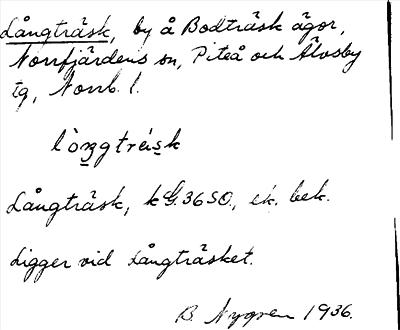 Långträsk, by å Bodträsk ägor,
Norrfjärdens sn, Piteå och Älvsby
tg, Norrb. l.
Långträsk, kG. 36 SO., ek. bek.
Ligger vid Långträsket.
B. Nygren 1936.